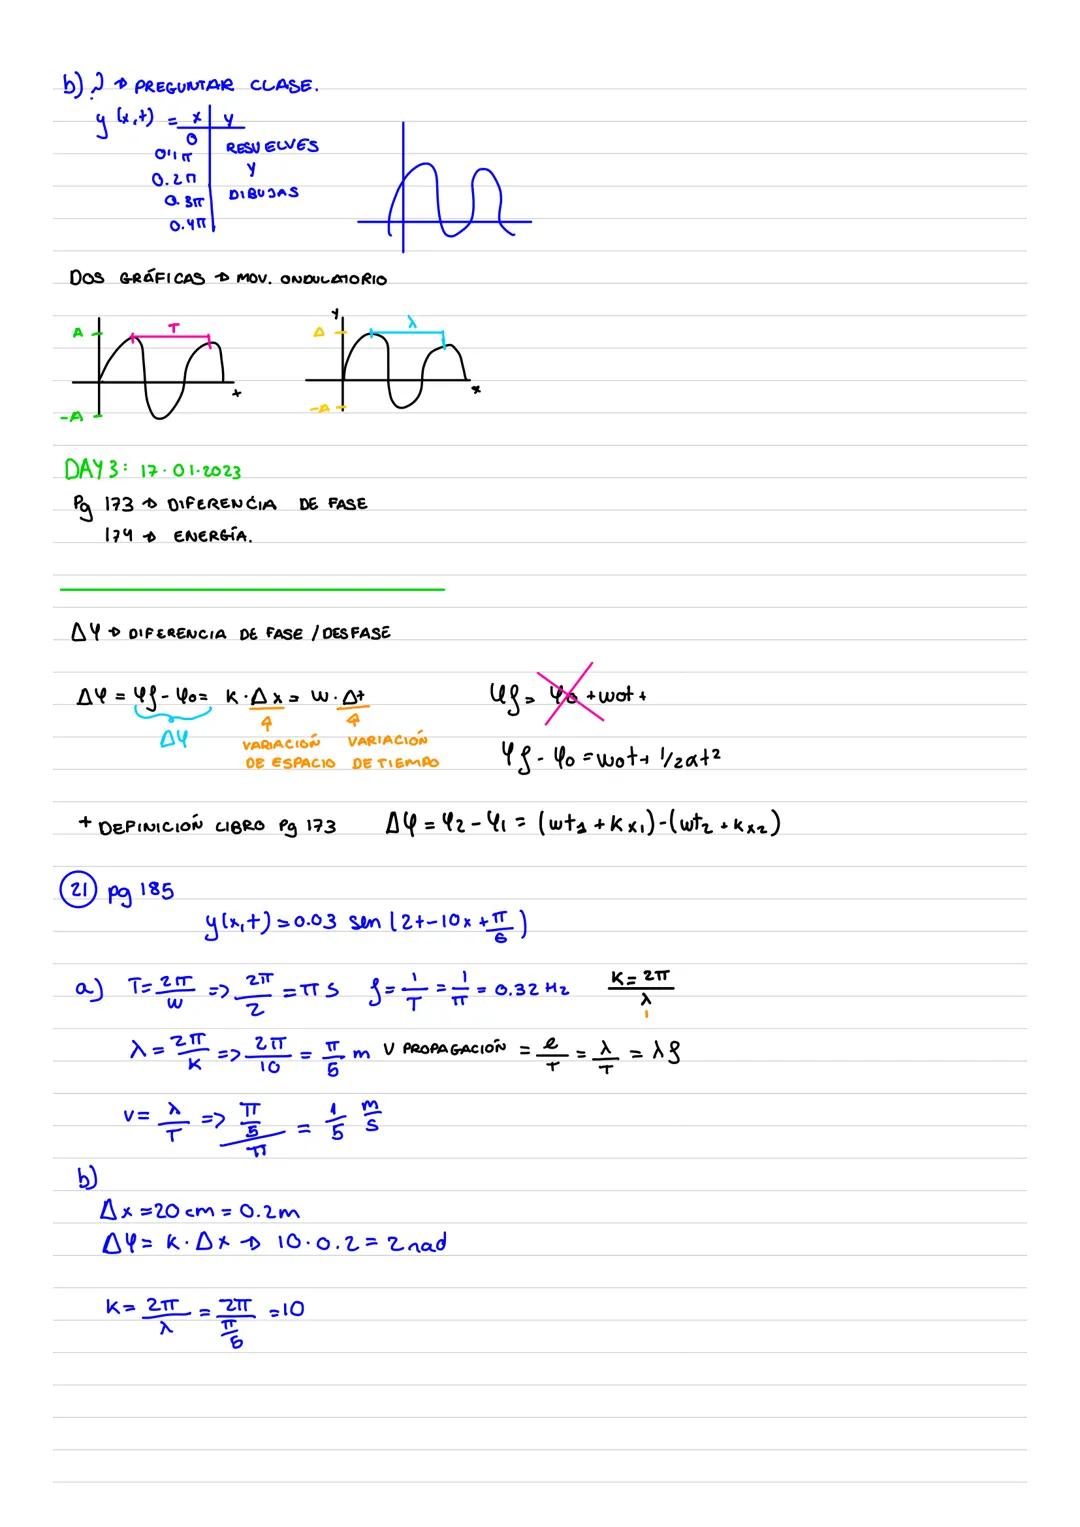 b) ? → PREGUNTAR CLASE.
y (x,t) = x | y
0
0'1π
0.2π
0.3π
0.4π
RESUELVES
Y
DIBUJAS
DOS GRÁFICAS → MOV. ONDULATORIO
A T
-A t
y A λ
-A x
DAY 3: 17·01·2023
Pg 173 → DIFERENCIA DE FASE
174 → ENERGÍA.
Δφ → DIFERENCIA DE FASE / DESFASE
Δφ = φf - φ0 = K·Δx = w·Δt
Δφ
VARIACIÓN DE ESPACIO
VARIACIÓN DE TIEMPO
φf = φ0 + w0t +
φf - φ0 = w0t + 1/2αt²
+ DEFINICIÓN LIBRO Pg 173 Δφ = φ2 - φ1 = (wt1 + Kx1) - (wt2 + Kx2)
21 pg 185
y(x,t) = 0.03 sen (2t - 10x + π/6)
a) T = 2π/w => 2π/2 = π s f = 1/T = 1/π = 0.32 Hz K = 2π/λ
1
λ = 2π/K => 2π/10 = π/5 m V PROPAGACIÓN = e/T = λ/T = λf
v = λ/T => π/5/π = 1/5 m/s
b)
Δx = 20 cm = 0.2m
Δφ = K·Δx → 10·0.2 = 2 rad
K = 2π/λ = 2π/π/5 = 10